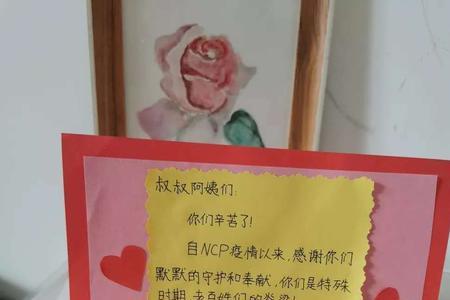 叔叔阿姨们:
你们辛苦了!
自NCP疫情以来,感谢你们
默默的守护和奉献,你们是特殊
时期,老百姓们的